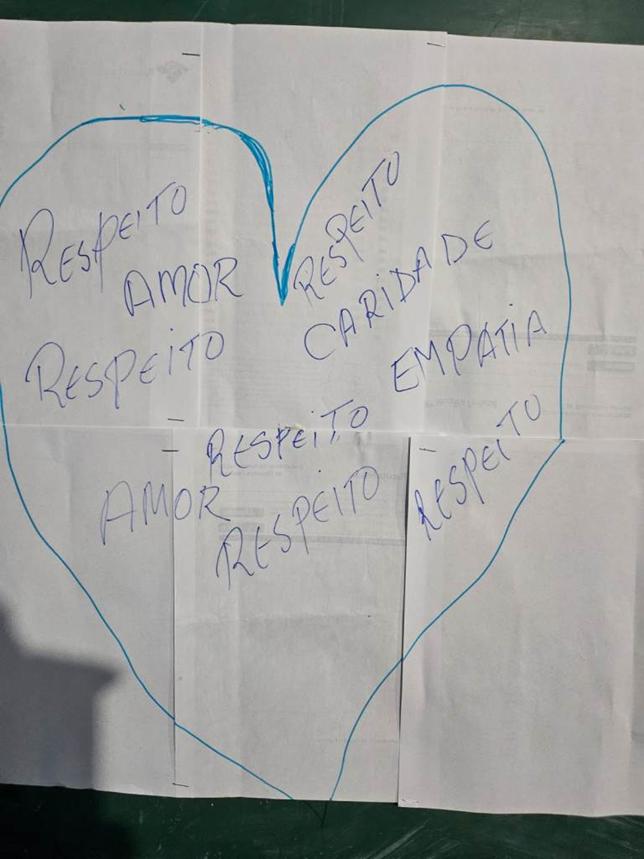 RESPEITO
AMOR
RESPEITO
RESPEITO
CARIDADE
EMPATIA
RESPEITO
AMOR
RESPEITO
RESPEITO